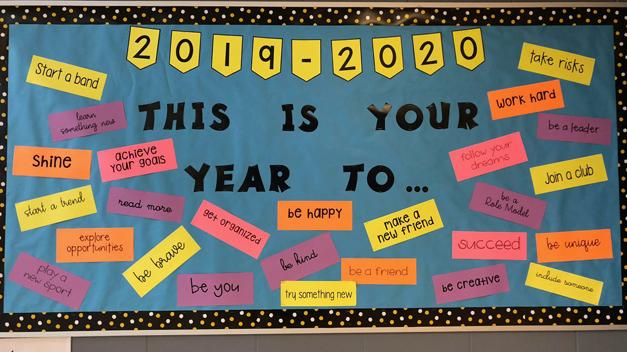 2019-2020
THIS IS YOUR
YEAR TO...
Start a band
take risks
work hard
learn
something new
be a leader
Shine
achieve
your goals
follow your
dreams
Join a club
start a trend
read more
be a
Role Model
get organized
be happy
make a
new friend
explore
opportunities
be brave
be kind
succeed
be unique
play a
new sport
be you
try something new
be a friend
be creative
include someone